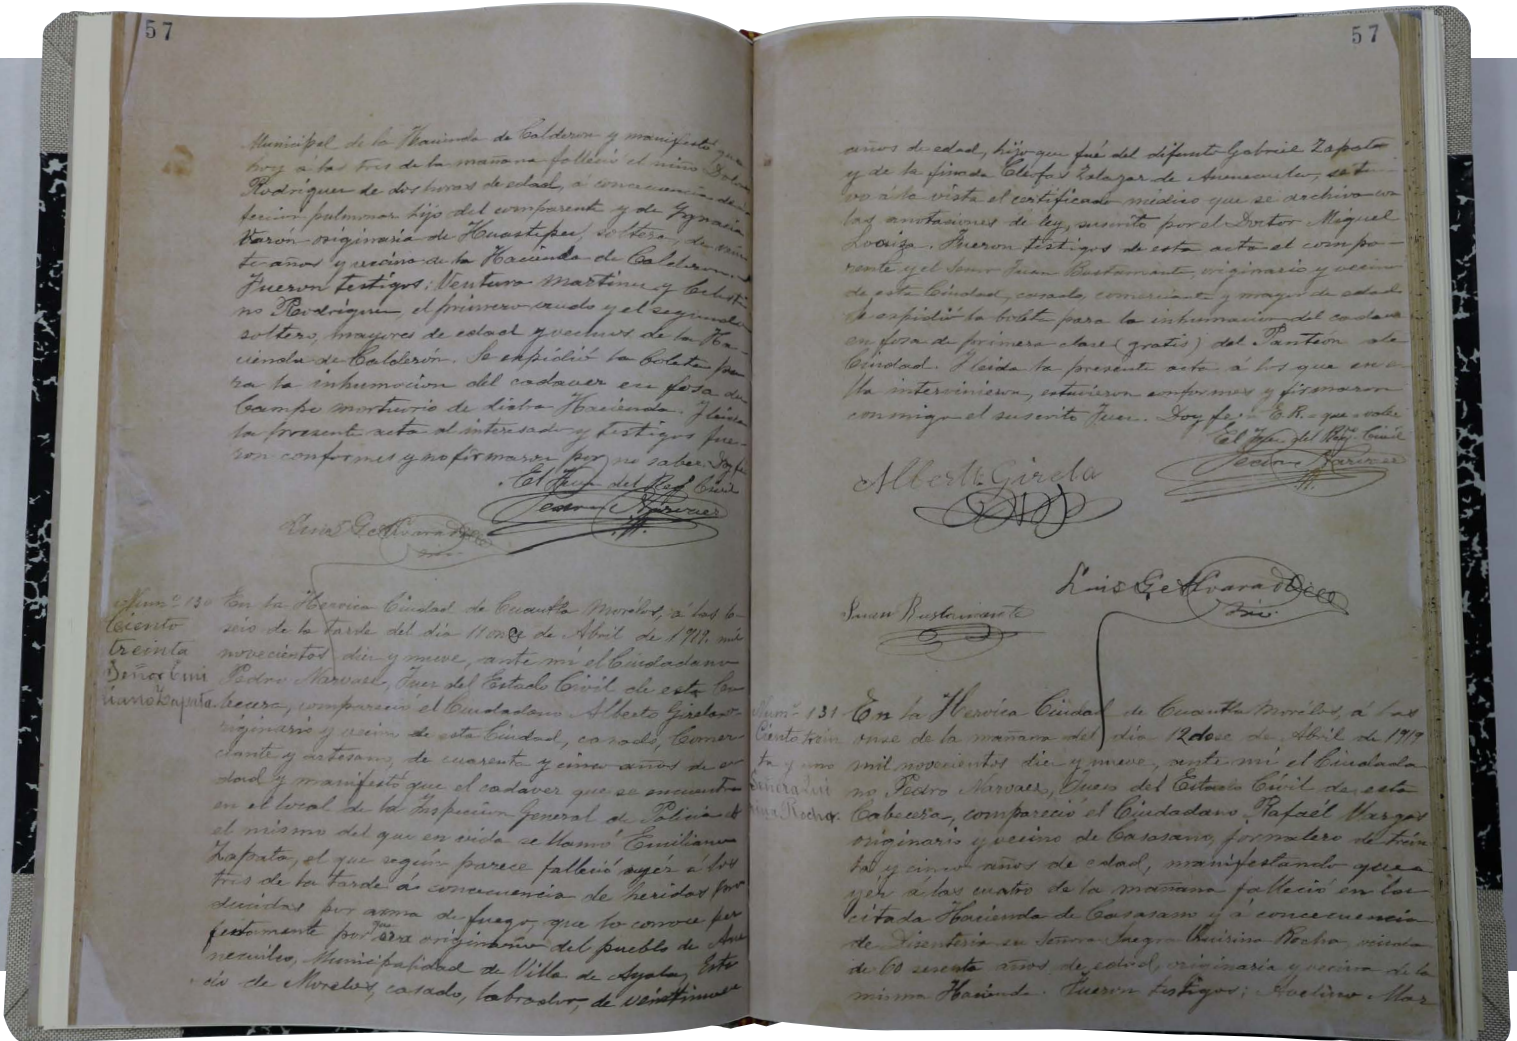 57
Municipal de la Hacienda de Calderon y manifestó que
hoy á las tres de la mañana falleció el niño
Rodriguez de dos horas de edad, á concecuencia de
pulmonar hijo del comparente y de Ygnacia
originaria de Huastepec, soltera, de vein
te años y vecina de la Hacienda de Calderon
Fueron testigos: Ventura Martinez y Celesti
no Rodriguez, el primero viudo y el segundo
soltero, mayores de edad y vecinos de la Ha-
cienda de Calderon. Se expidió la boleta pa
ra la inhumacion del cadaver en fosa del
Campo mortuorio de dicha Hacienda. Y leida
la presente acta al interesado y testigos fue-
ron conformes y no firmaron por no saber. Doy fé
El Juez del Reg. Civil
Pedro Narvaez
Luis G. Alvarado
Num.º 130
Ciento
treinta
Señor Emi
liano Zapata
En la Heroica Ciudad de Cuautla Morélos, á las
seis de la tarde del dia 11 once de Abril de 1919. mil
novecientos diez y nueve, ante mí el Ciudadano
Pedro Narvaez, Juez del Estado Civil de esta Ca
becera, compareció el Ciudadano Alberto Girela
originario y vecino de esta Ciudad, casado, Comer-
ciante y artesano, de cuarenta y cinco años de e
dad y manifestó que el cadaver que se encuentra
en el local de la Inspección General de Policia es
el mismo del que en vida se llamó Emiliano
Zapata, el que según parece falleció ayér á las
tres de la tarde á concecuencia de heridas pro
ducidas por arma de fuego, que lo conoce per
fectamente por que era originario del pueblo de Ane
necuilco, Municipalidad de Villa de Ayala, Esta
do de Morelos, casado, labrador, de veintinueve
57
años de edad, hijo que fué del difunto Gabriel Zapata
y de la finada Cleofas Zalazar de Anenecuilco, se tu-
vo á la vista el certificado médico que se archiva con
las anotaciones de ley, suscrito por el Doctor Miguel
Loaiza. Fueron testigos de esta acta el compa-
rente y el Señor Juan Bustamante, originario y vecino
de esta Ciudad, casado, comerciante y mayor de edad.
se expidió la boleta para la inhumacion del cadaver
en fosa de primera clase (gratis) del Panteón de
Ciudad. Y leida la presente acta á los que en e
lla intervinieron, estuvieron conformes y firmaron
conmigo el suscrito Juez. Doy fé
El Juez del Reg. Civil
Pedro Narvaez
Alberto Girela
Luis G. Alvarado
Juan Bustamante
Num.º 131
Ciento trein
ta y uno
Señora Qui
rina Rocha.
En la Heroica Ciudad de Cuautla Morélos, á las
onse de la mañana del dia 12 doce de Abril de 1919
mil novecientos diez y nueve, ante mí el Ciudada
no Pedro Narvaez, Juez del Estado Civil de esta
Cabecera, compareció el Ciudadano Rafaél Vargas
originario y vecino de Casasano, jornalero de trein
ta y cinco años de edad, manifestando que a
yér a las cuatro de la mañana falleció en la
citada Hacienda de Casasano y á concecuencia
de Disenteria su Señora Suegra Quirina Rocha, viuda
de 60 sesenta años de edad, originaria y vecina de la
misma Hacienda. Fueron testigos: Avelino Mar